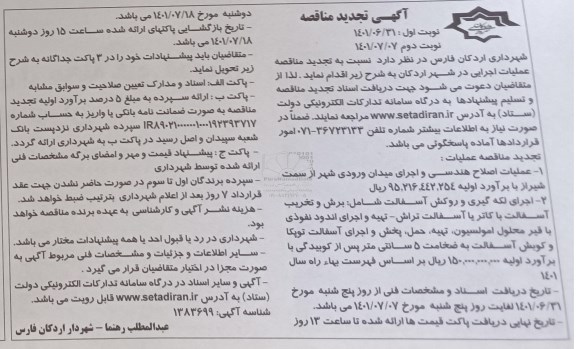 آگهی تجدید مناقصه
نوبت اول : ۱۴۰۱/۰۶/۳۱
نوبت دوم ۱۴۰۱/۰۷/۰۷
شهرداری اردکان فارس در نظر دارد نسبت به تجدید مناقصه
عملیات اجرایی در شهر اردکان به شرح زیر اقدام نماید. لذا از
متقاضیان دعوت می شود جهت دریافت اسناد تجدید مناقصه
و تسلیم پیشنهادها به درگاه سامانه تدارکات الکترونیکی دولت
(ستاد) به آدرس www.setadiran.ir مراجعه نمایند. ضمناً در
صورت نیاز به اطلاعات بیشتر شماره تلفن ۳۶۷۲۳۱۳۳-۰۷۱ امور
قراردادها آماده پاسخگوئی می باشد.
تجدید مناقصه عملیات :
۱- عملیات اصلاح هندسی و اجرای میدان ورودی شهر از سمت
شیراز با برآورد اولیه ۹۵,۲۱۶,۴۴۲,۲۵۴ ریال
۲- اجرای لکه گیری و روکش آسفالت شامل: برش و تخریب
آسفالت با کاتر یا آسفالت تراش- تهیه و اجرای اندود نفوذی
با قیر محلول امولسیون، تهیه، حمل، پخش و اجرای آسفالت توپکا
و کوبش آسفالت به ضخامت ۵ سانتی متر پس از کوبیدگی با
برآورد اولیه ۱۵۰,۰۰۰,۰۰۰,۰۰۰ ریال بر اساس فهرست بهاء راه سال
۱۴۰۱
- تاریخ دریافت اسناد و مشخصات فنی از روز پنج شنبه مورخ
۱۴۰۱/۰۶/۳۱ لغایت روز پنج شنبه مورخ ۱۴۰۱/۰۷/۰۷ می باشد.
- تاریخ نهایی دریافت پاکت قیمت ها ارائه شده تا ساعت ۱۳ روز
دوشنبه مورخ ۱۴۰۱/۰۷/۱۸ می باشد.
- تاریخ بازگشایی پاکتهای ارائه شده ساعت ۱۵ روز دوشنبه
۱۴۰۱/۰۷/۱۸ می باشد.
- متقاضیان باید پیشنهادات خود را در ۳ پاکت جداگانه به شرح
زیر تحویل نماید.
- پاکت الف: اسناد و مدارک تعیین صلاحیت و سوابق مشابه
- پاکت ب : ارائه سپرده به مبلغ ۵ درصد برآورد اولیه تجدید
مناقصه به صورت ضمانت نامه بانکی یا واریز به حساب شماره
سپرده شهرداری نزدپست بانک
شعبه سپیدان و اصل رسید در پاکت ب به شهرداری ارائه گردد.
- پاکت ج : پیشنهاد قیمت و مهر و امضای برگه مشخصات فنی
ارائه شده توسط شهرداری
- سپرده برندگان اول تا سوم در صورت حاضر نشدن جهت عقد
قرارداد ۷ روز بعد از اعلام شهرداری بترتیب ضبط خواهد شد.
- هزینه نشر آگهی و کارشناسی به عهده برنده مناقصه خواهد
بود.
- شهرداری در رد یا قبول احد یا همه پیشنهادات مختار می باشد.
- سایر اطلاعات و جزئیات و مشخصات فنی مربوط آگهی به
صورت مجزا در اختیار متقاضیان قرار می گیرد .
- آگهی و سایر اسناد در درگاه سامانه تدارکات الکترونیکی دولت
(ستاد) به آدرس www.setadiran.ir قابل رویت می باشد.
شناسه آگهی: ۱۳۸۳۶۹۹
عبدالمطلب رهنما - شهردار اردکان فارس